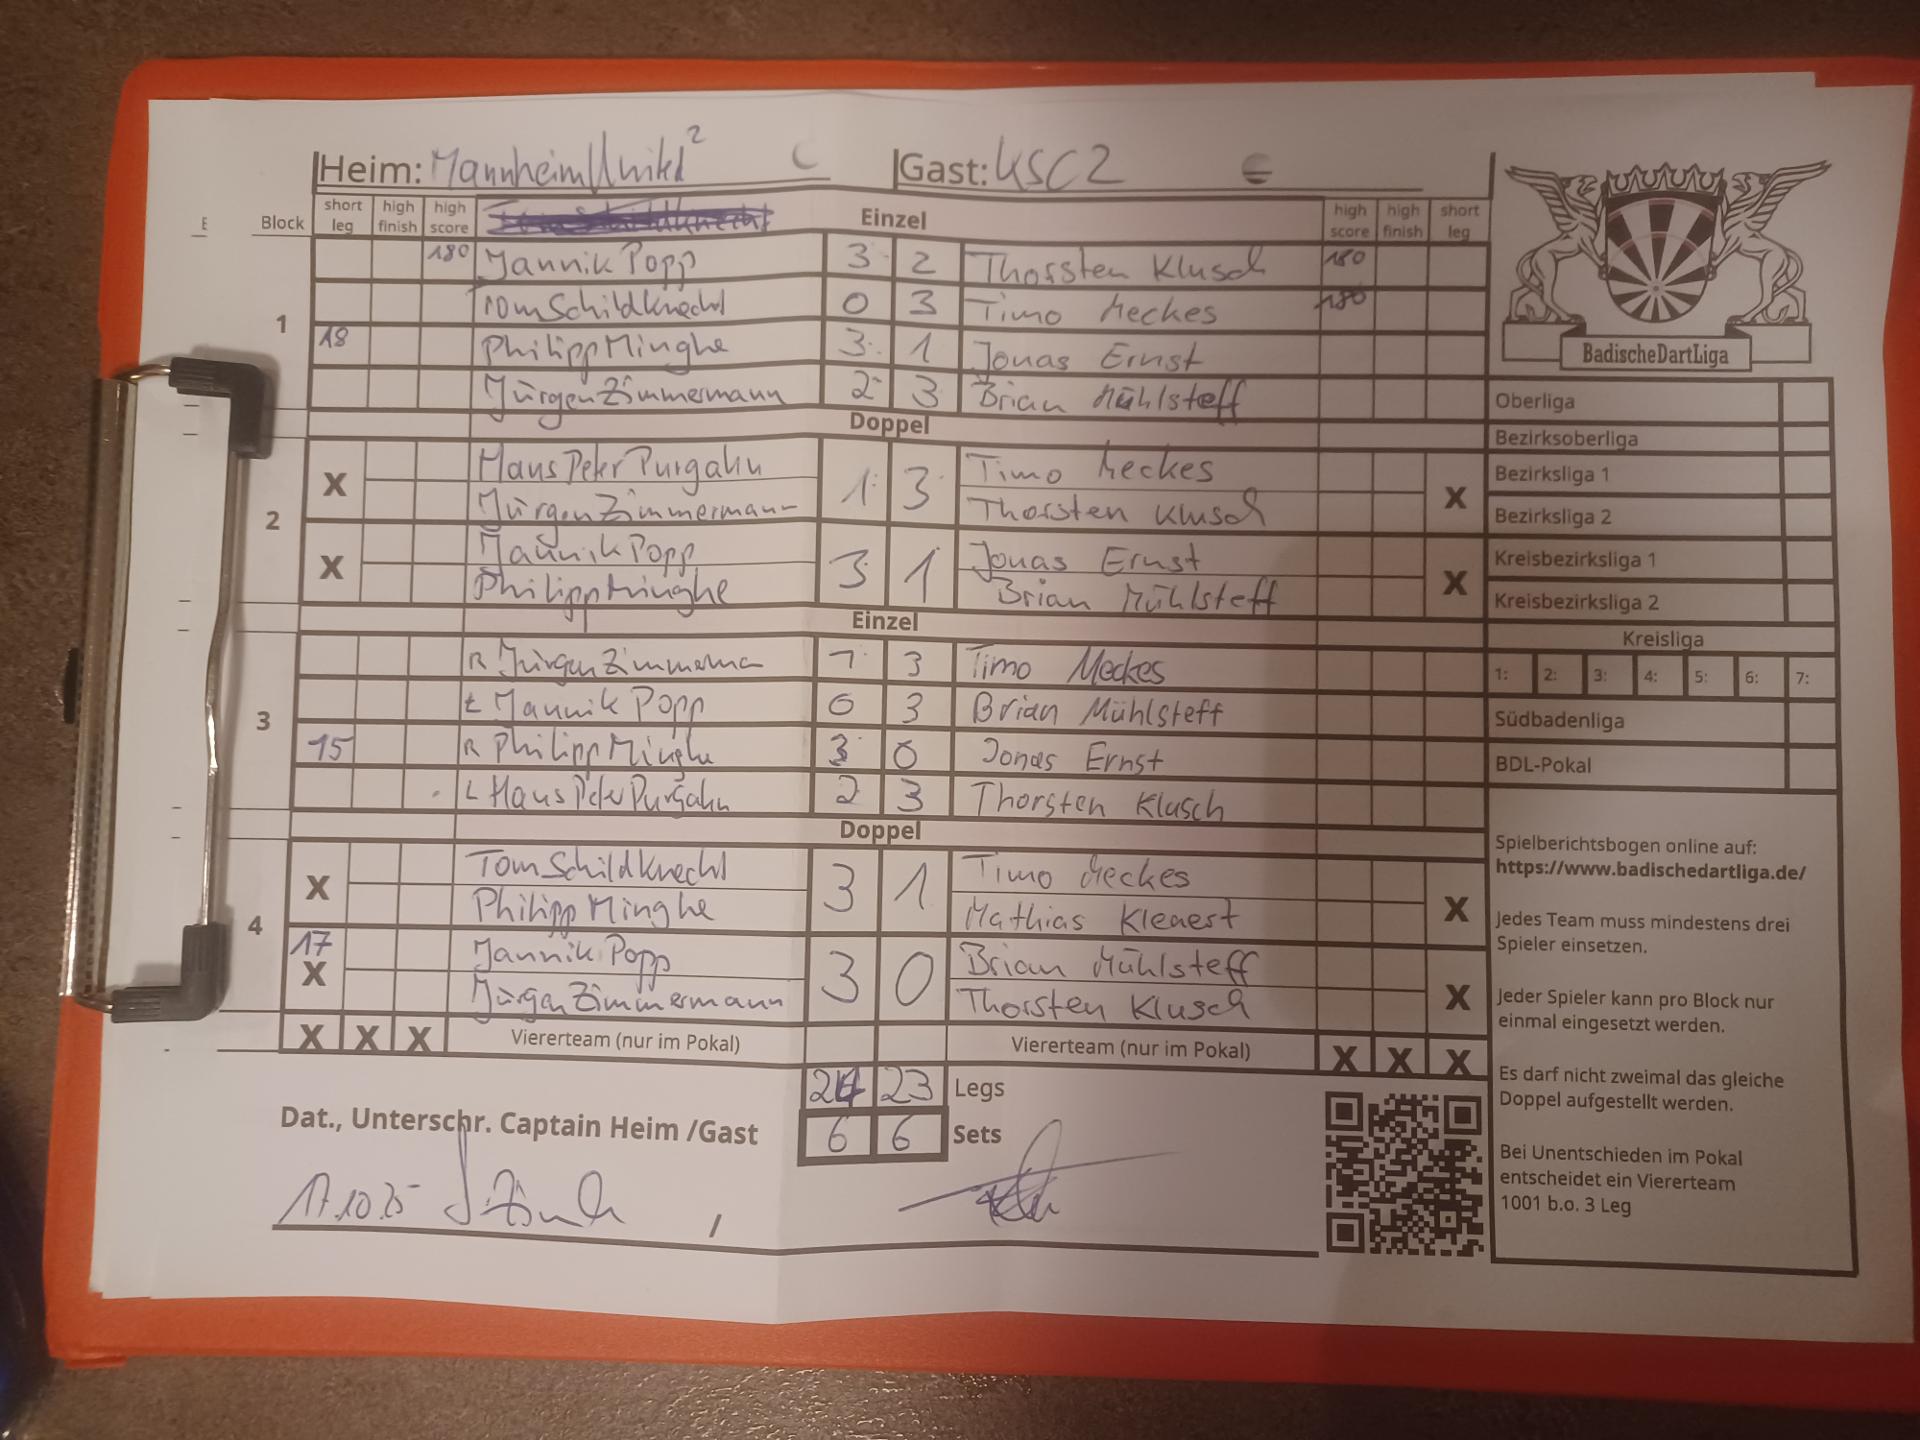 Heim: Mannheim United 2 Gast: KSC 2
Block short leg high finish high score Einzel high score high finish short leg
180 Jannik Popp 3 : 2 Thorsten Klusch 180
1 Tom Schildknecht 0 3 Timo Meckes 180
18 Philipp Minghe 3 : 1 Jonas Ernst
Jürgen Zimmermann 2 : 3 Brian Mühlsteff
Doppel
2 X Hans Peter Purgahn 1 : 3 Timo Meckes X
Jürgen Zimmermann Thorsten Klusch
X Jannik Popp 3 1 Jonas Ernst X
Philipp Minghe Brian Mühlsteff
Einzel
3 R Jürgen Zimmerma 1 : 3 Timo Meckes
Jannik Popp 0 3 Brian Mühlsteff
15 R Philipp Minghe 3 0 Jonas Ernst
L Hans Peter Purgahn 2 3 Thorsten Klusch
Doppel
4 X Tom Schildknecht 3 1 Timo Meckes X
Philipp Minghe Mathias Klenert
17 X Jannik Popp 3 0 Brian Mühlsteff X
Jürgen Zimmermann Thorsten Klusch
X X X Viererteam (nur im Pokal) Viererteam (nur im Pokal) X X X
24 23 Legs
6 6 Sets
Dat., Unterschr. Captain Heim /Gast
17.10.25 /
BadischeDartLiga
Oberliga
Bezirksoberliga
Bezirksliga 1
Bezirksliga 2
Kreisbezirksliga 1
Kreisbezirksliga 2
Kreisliga
1: 2: 3: 4: 5: 6: 7:
Südbadenliga
BDL-Pokal
Spielberichtsbogen online auf:
https://www.badischedartliga.de/
Jedes Team muss mindestens drei
Spieler einsetzen.
Jeder Spieler kann pro Block nur
einmal eingesetzt werden.
Es darf nicht zweimal das gleiche
Doppel aufgestellt werden.
Bei Unentschieden im Pokal
entscheidet ein Viererteam
1001 b.o. 3 Leg